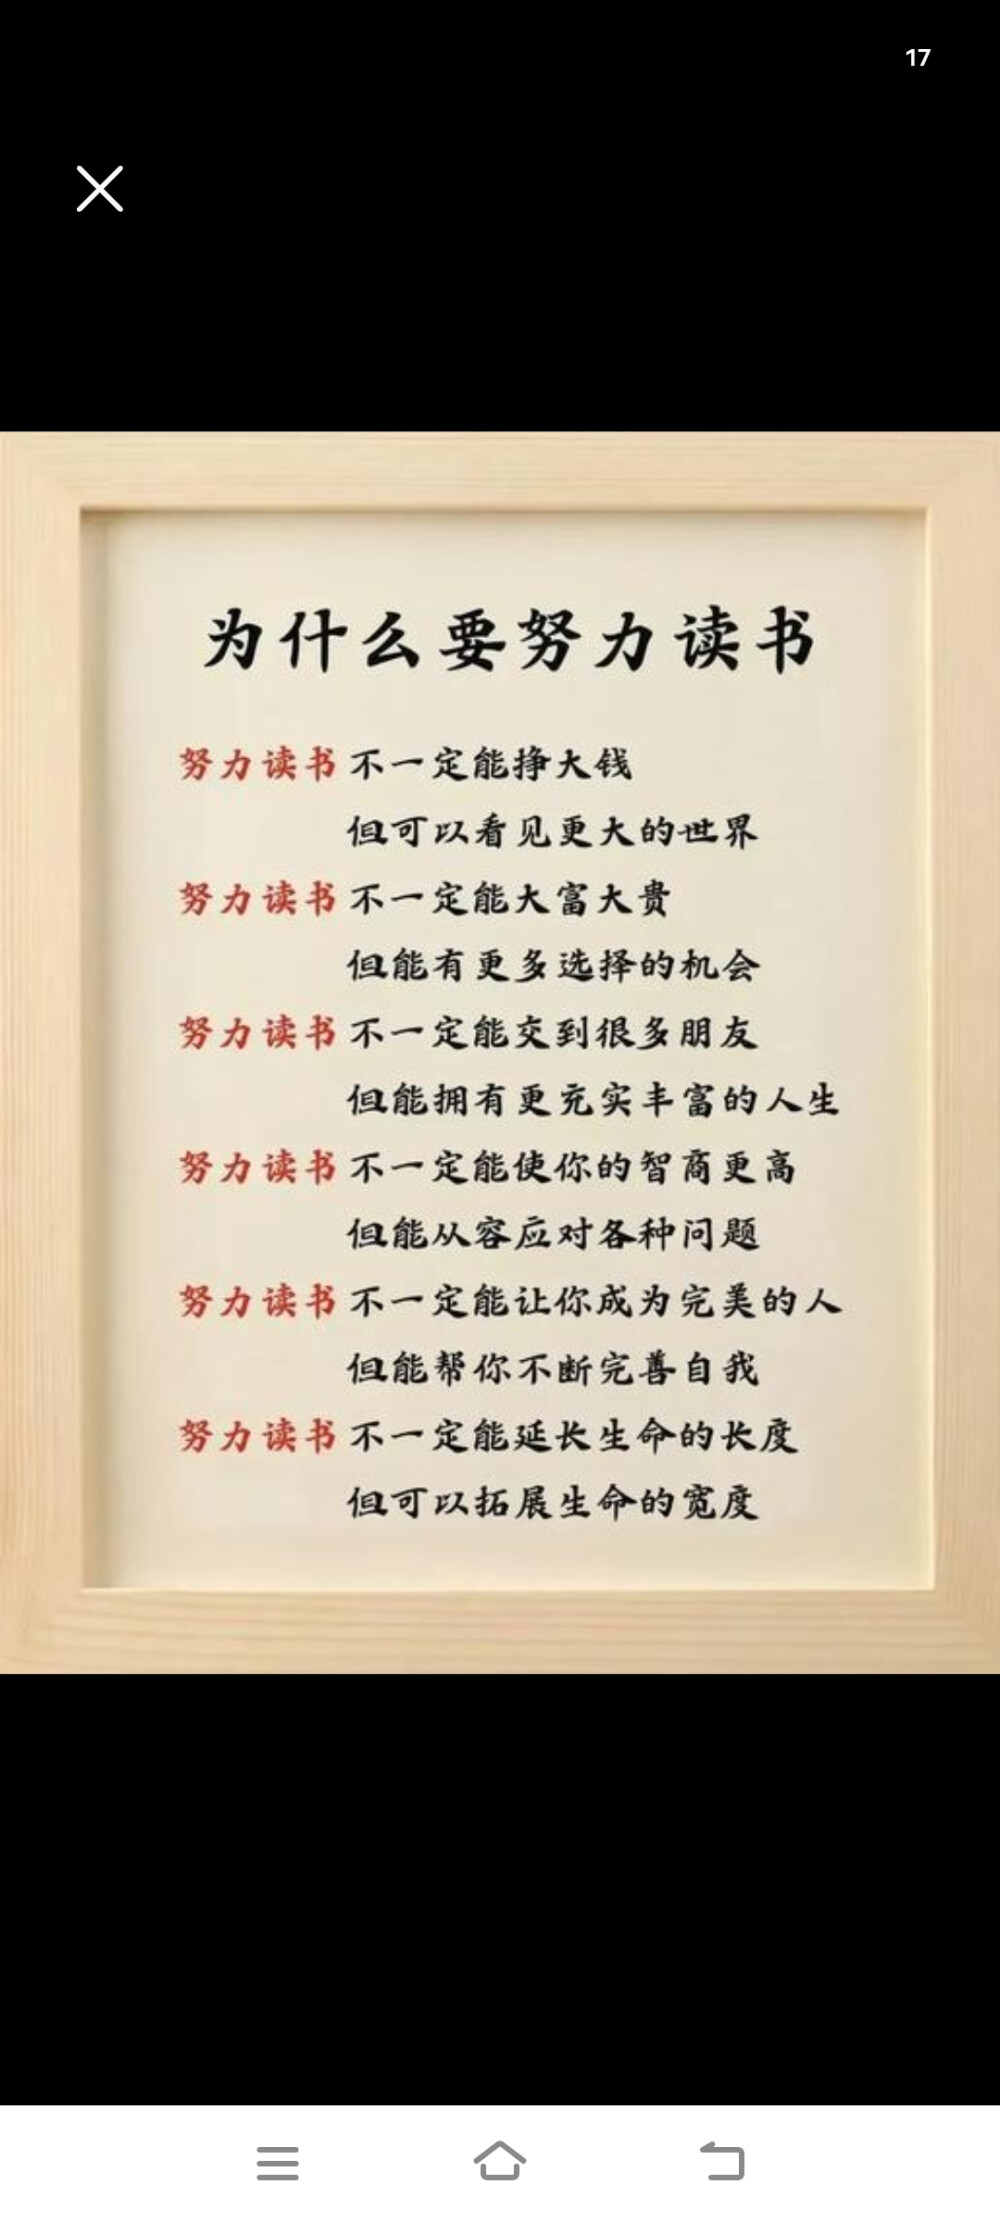 17
为什么要努力读书
努力读书 不一定能挣大钱
但可以看见更大的世界
努力读书 不一定能大富大贵
但能有更多选择的机会
努力读书 不一定能交到很多朋友
但能拥有更充实丰富的人生
努力读书 不一定能使你的智商更高
但能从容应对各种问题
努力读书 不一定能让你成为完美的人
但能帮你不断完善自我
努力读书 不一定能延长生命的长度
但可以拓展生命的宽度